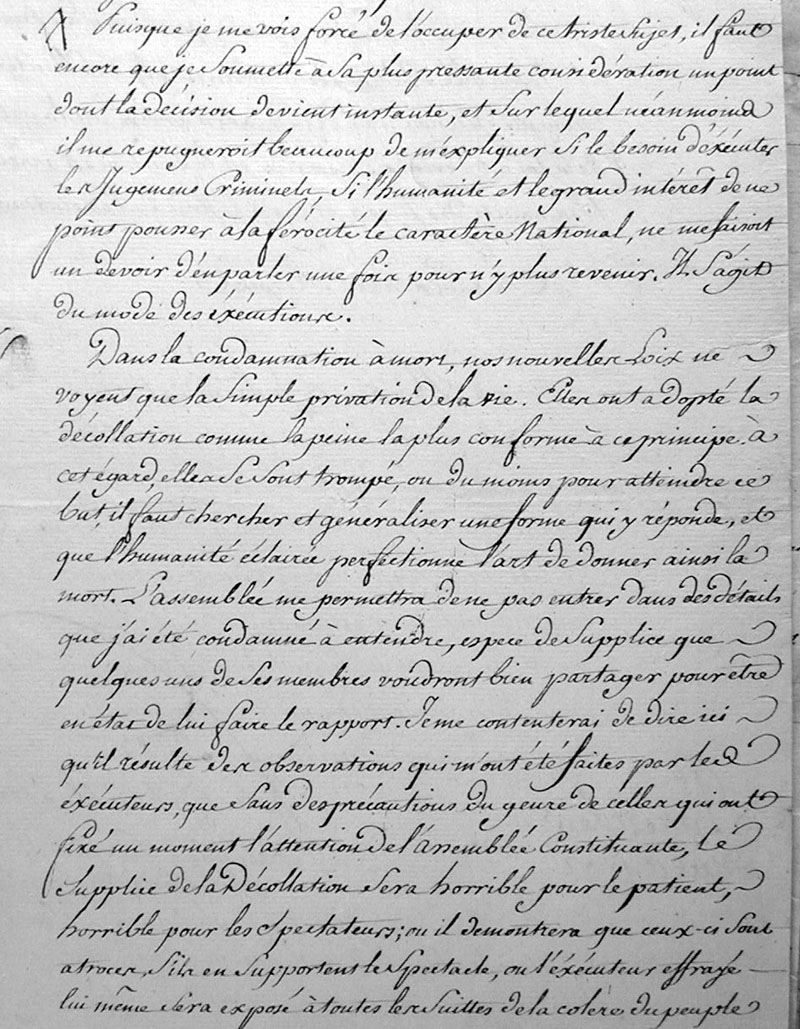 Puisque je me vois forcé de l'occuper de ce triste sujet, il faut
encore que je soumette à sa plus pressante considération un point
dont la décision devient instante, et sur lequel néanmoins
il me repugneroit beaucoup de m'expliquer si le besoin d'éxécuter
les Jugemens Criminels si l'humanité et le grand intérêt de ne
point pousser à la férocité le caractère National, ne me faisoit
un devoir d'en parler une fois pour n'y plus revenir. Il s'agit
du mode des éxécutions.
Dans la condamnation à mort, nos nouvelles Loix ne
voyent que la simple privation de la vie. Elles ont adopté la
décollation comme la peine la plus conforme à ce principe. à
cet égard, elles se sont trompé, ou du moins pour atteindre ce
but, il faut chercher et généraliser une forme qui y réponde, et
que l'humanité éclairée perfectionne l'art de donner ainsi la
mort. L'assemblée me permettra de ne pas entrer dans des détails
que j'ai été condamné à entendre, espece de supplice que
quelques uns de ses membres voudront bien partager pour être
en état de lui faire le rapport. Je me contenterai de dire ici
qu'il résulte des observations qui m'ont été faites par les
éxécuteurs, que sans des précautions du genre de celles qui ont
fixé un moment l'attention de l'assemblée Constituante, le
supplice de la Décollation sera horrible pour le patient,
horrible pour les spectateurs; ou il demontrera que ceux-ci sont
atroces, s'ils en supportent le spectacle, ou l'éxécuteur effrayé
lui même sera exposé à toutes les suittes de la colere du peuple